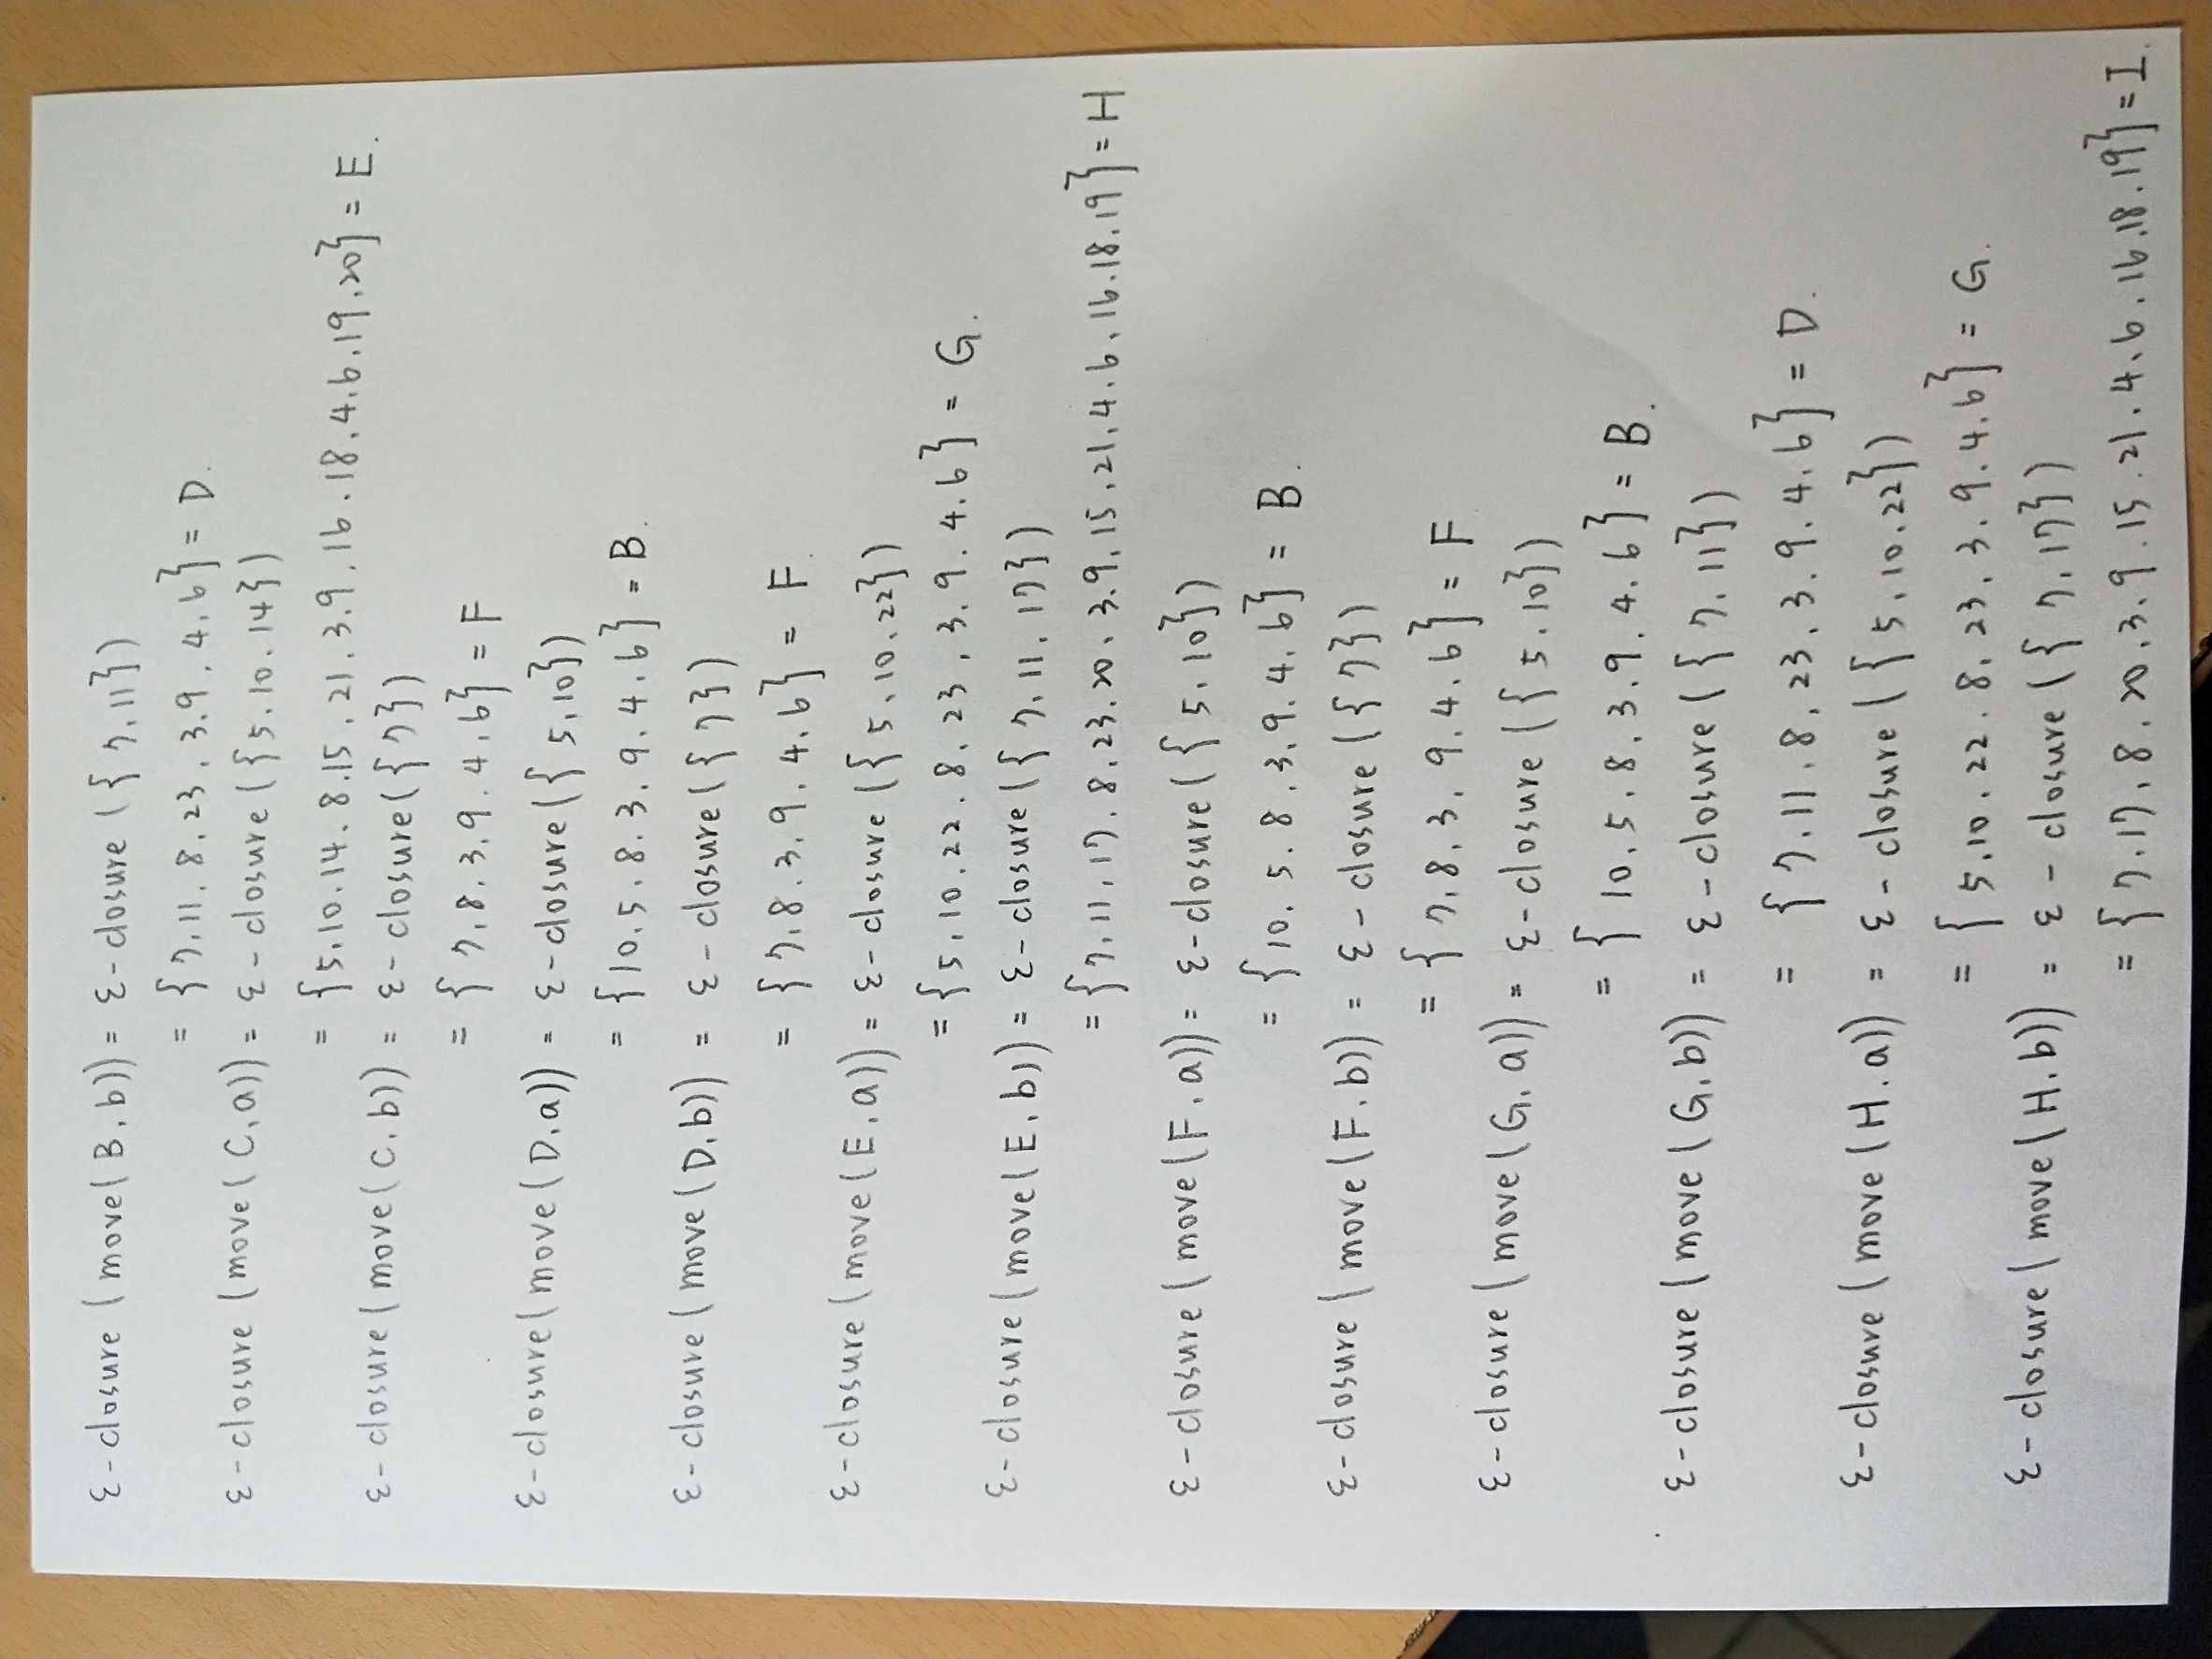 ε-closure (move(B,b)) = ε-closure ({7,11})
= {7,11,8,23,3,9,4,6} = D.
ε-closure (move(C,a)) = ε-closure ({5,10,14})
= {5,10,14,8,15,21,3,9,16,18,4,6,19,20} = E.
ε-closure (move(C,b)) = ε-closure ({7})
= {7,8,3,9,4,6} = F
ε-closure (move(D,a)) = ε-closure ({5,10})
= {10,5,8,3,9,4,6} = B.
ε-closure (move(D,b)) = ε-closure ({7})
= {7,8,3,9,4,6} = F.
ε-closure (move(E,a)) = ε-closure ({5,10,22})
= {5,10,22,8,23,3,9,4,6} = G.
ε-closure (move(E,b)) = ε-closure ({7,11,17})
= {7,11,17,8,23,20,3,9,15,21,4,6,16,18,19} = H
ε-closure (move(F,a)) = ε-closure ({5,10})
= {10,5,8,3,9,4,6} = B.
ε-closure (move(F,b)) = ε-closure ({7})
= {7,8,3,9,4,6} = F
ε-closure (move(G,a)) = ε-closure ({5,10})
= {10,5,8,3,9,4,6} = B.
ε-closure (move(G,b)) = ε-closure ({7,11})
= {7,11,8,23,3,9,4,6} = D.
ε-closure (move(H,a)) = ε-closure ({5,10,22})
= {5,10,22,8,23,3,9,4,6} = G.
ε-closure (move(H,b)) = ε-closure ({7,17})
= {7,17,8,20,3,9,15,21,4,6,16,18,19} = I.